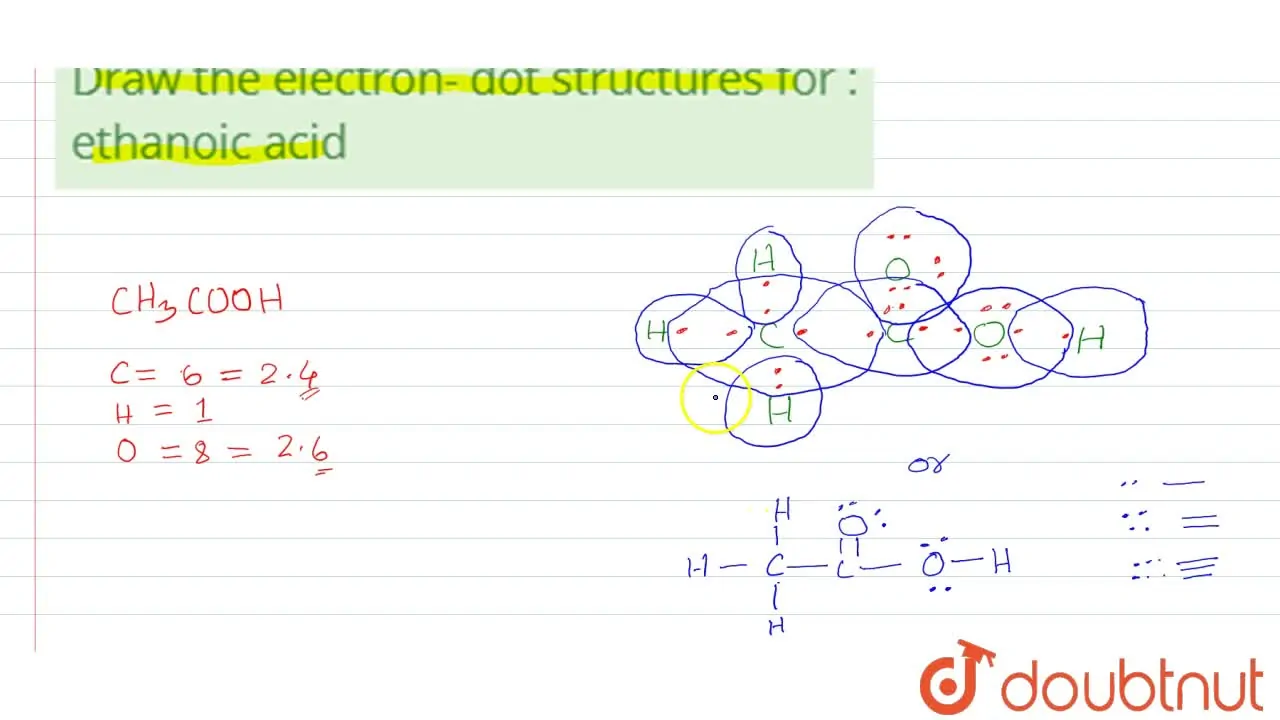 Draw the electron- dot structures for :
ethanoic acid
CH3COOH
C = 6 = 2.4
H = 1
O = 8 = 2.6
H O
H C C O H
H
or
H O
H — C — C — O — H
H
doubtnut